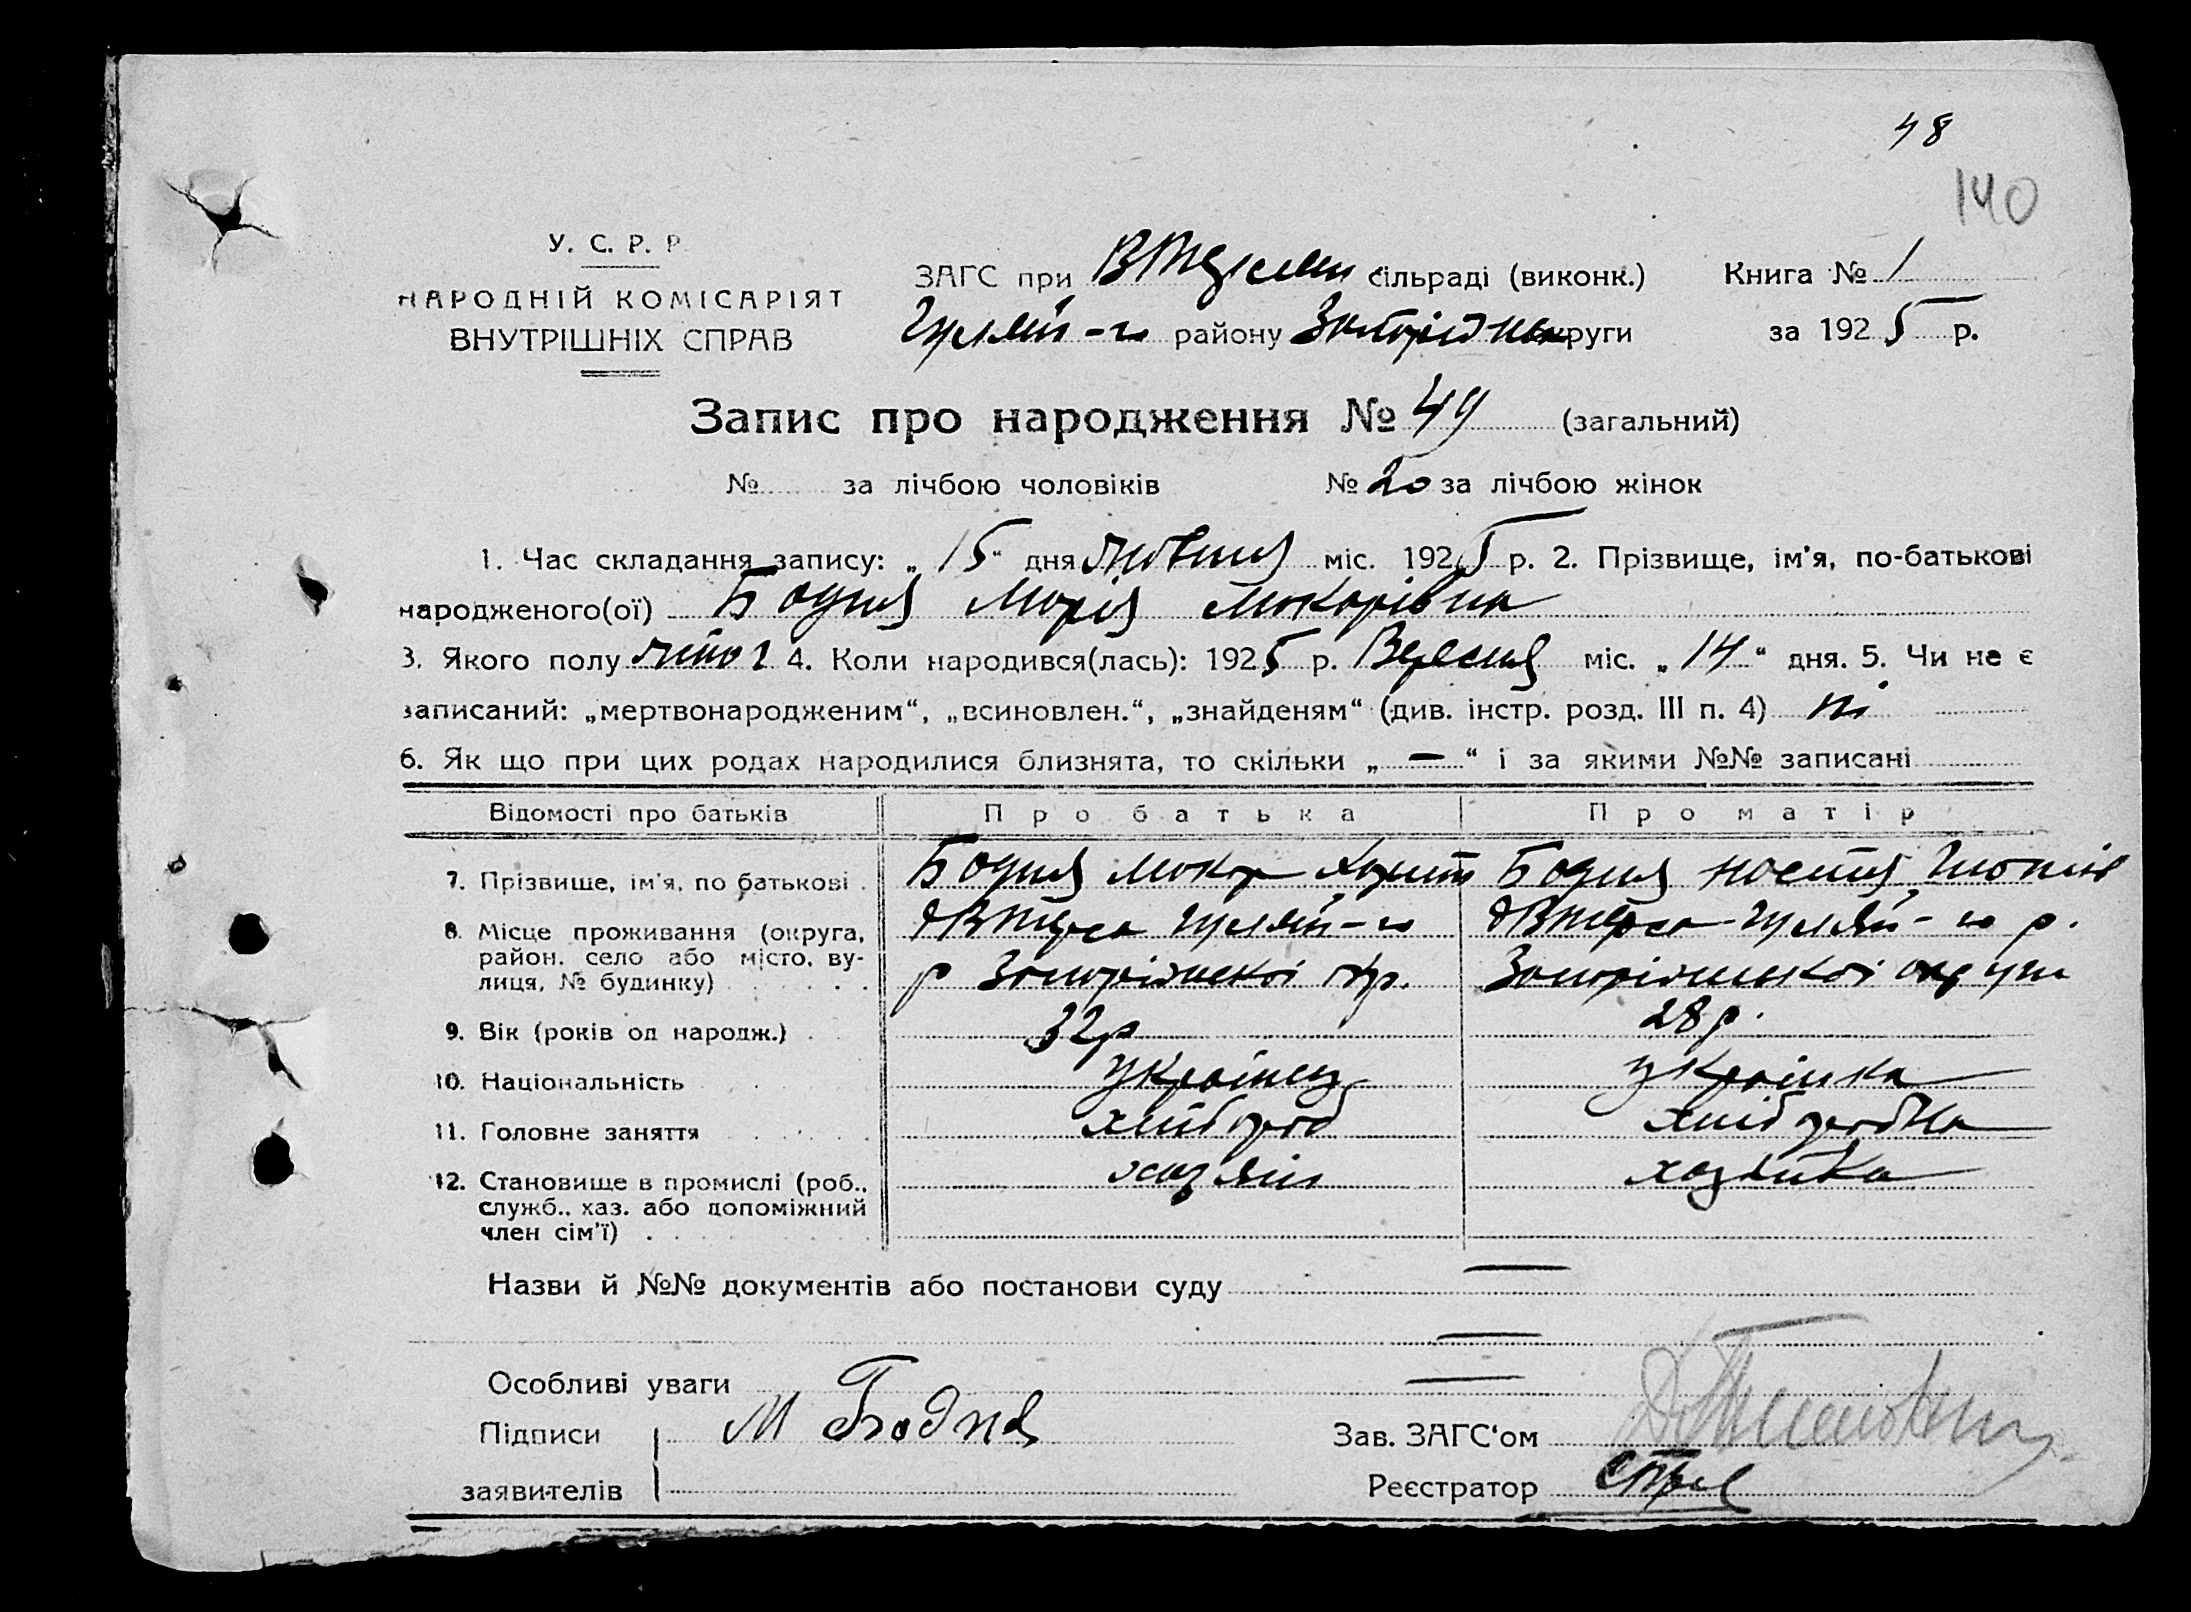 48
140
У. С. Р. Р.
НАРОДНІЙ КОМІСАРІЯТ
ВНУТРІШНІХ СПРАВ
ЗАГС при сільраді (виконк.) Книга № 1
Гуляй-го району округи за 1925 р.
Запис про народження № 49 (загальний)
№ за лічбою чоловіків № 20 за лічбою жінок
1. Час складання запису: „15“ дня жовтня міс. 1925 р. 2. Прізвище, ім'я, по-батькові
народженого(ої) Бодня Марія Макарівна
3. Якого полу 4. Коли народився(лась): 1925 р. Вересня міс. „14“ дня. 5. Чи не є
записаний: „мертвонародженим“, „всиновлен.“, „знайденям“ (див. інстр. розд. III п. 4) ні
6. Як що при цих родах народилися близнята, то скільки „—“ і за якими №№ записані
Відомості про батьків Про батька Про матір
7. Прізвище, ім'я, по батькові Бодня Макар Бодня Настя
8. Місце проживання (округа, Гуляй-го Гуляй-го р.
район, село або місто, ву- р Запоріжської окр. Запоріжської округи
лиця, № будинку)
9. Вік (років од народж.) 32р 28р.
10. Національність українец українка
11. Головне заняття хлібороб хліборобка
12. Становище в промислі (роб., хазяїн хазяйка
служб., хаз. або допоміжний
член сім'ї)
Назви й №№ документів або постанови суду —
—
Особливі уваги —
Підписи М Бодня Зав. ЗАГС'ом
заявителів Реєстратор